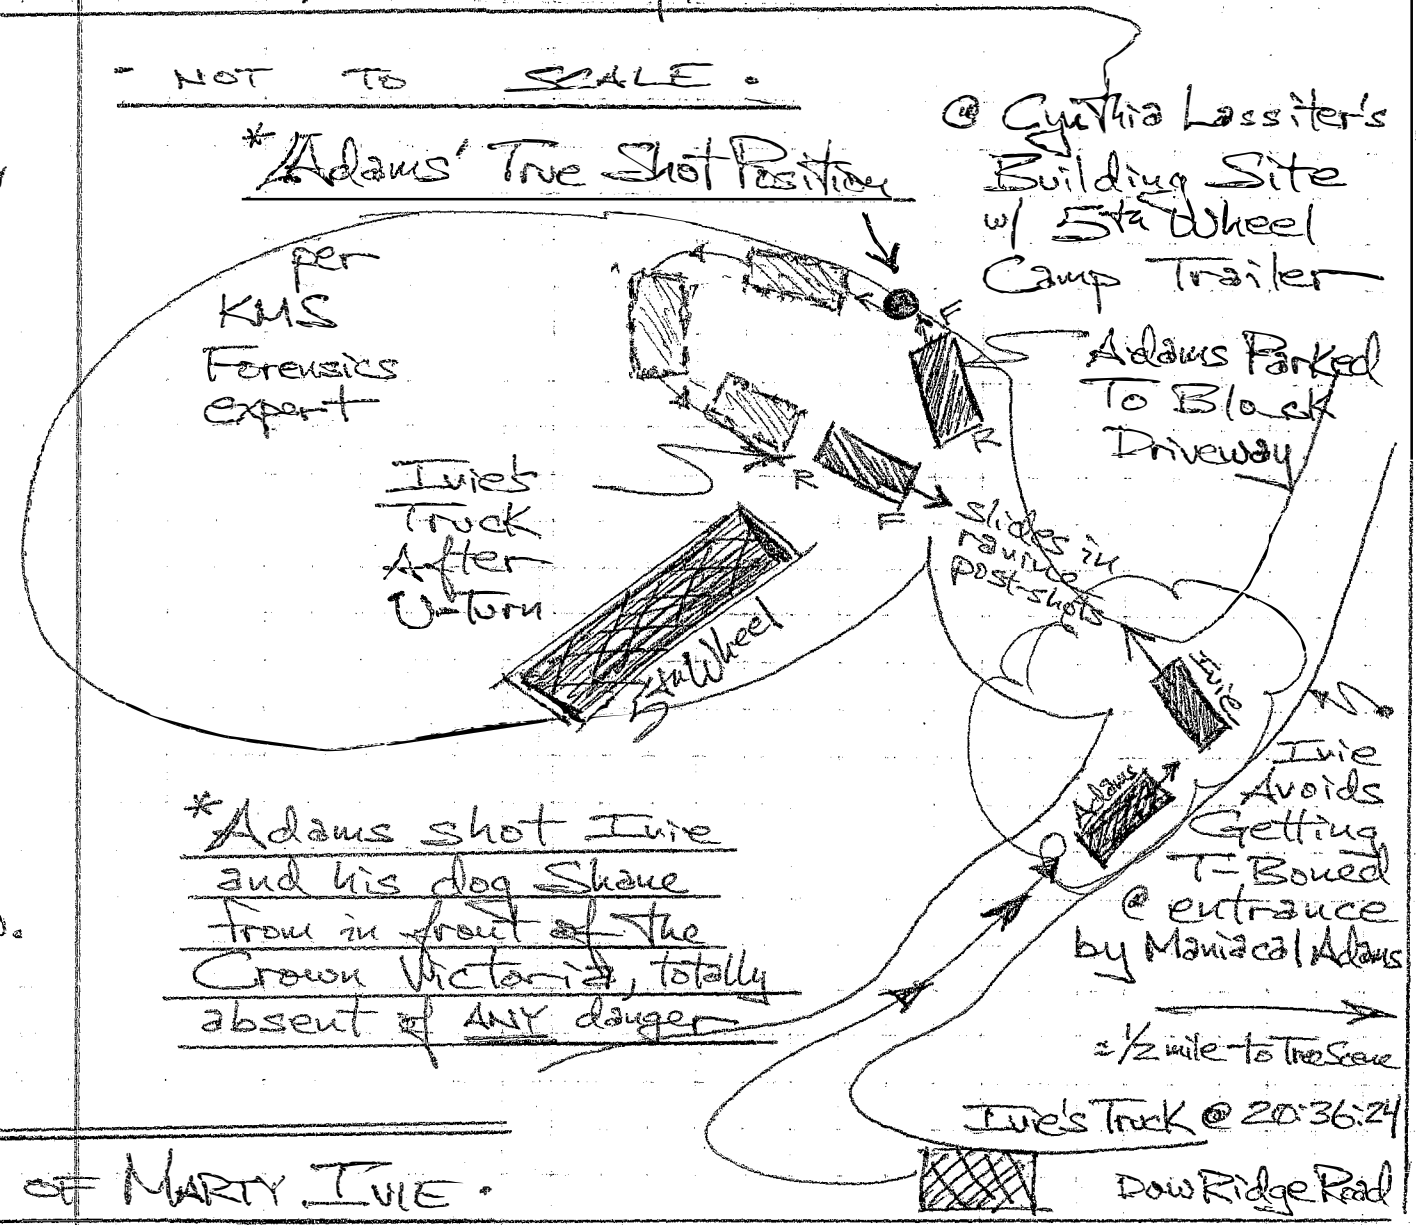 - NOT TO SCALE.
*Adams' True Shot Position
@ Cynthia Lassiter's
Building Site
w/ 5th Wheel
Camp Trailer
per
KMS
Forensics
expert
F
Adams Parked
To Block
Driveway
R
Ivie's
Truck
After
U-Turn
R
F
slides in
ravine
post-shots
5th Wheel
Ivie
Adams
Ivie
Avoids
Getting
T-Boned
@ entrance
by Maniacal Adams
*Adams shot Ivie
and his dog Shane
from in front of the
Crown Victoria, totally
absent of ANY danger
= 1/2 mile to True Scene
Ivie's Truck @ 20:36:24
Dow Ridge Road
OF MARTY IVIE.